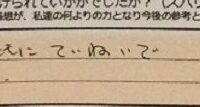 げられていかがでしたか？（スバリ
感想が、私達の何よりの力となり今後の参考と
にていねいで